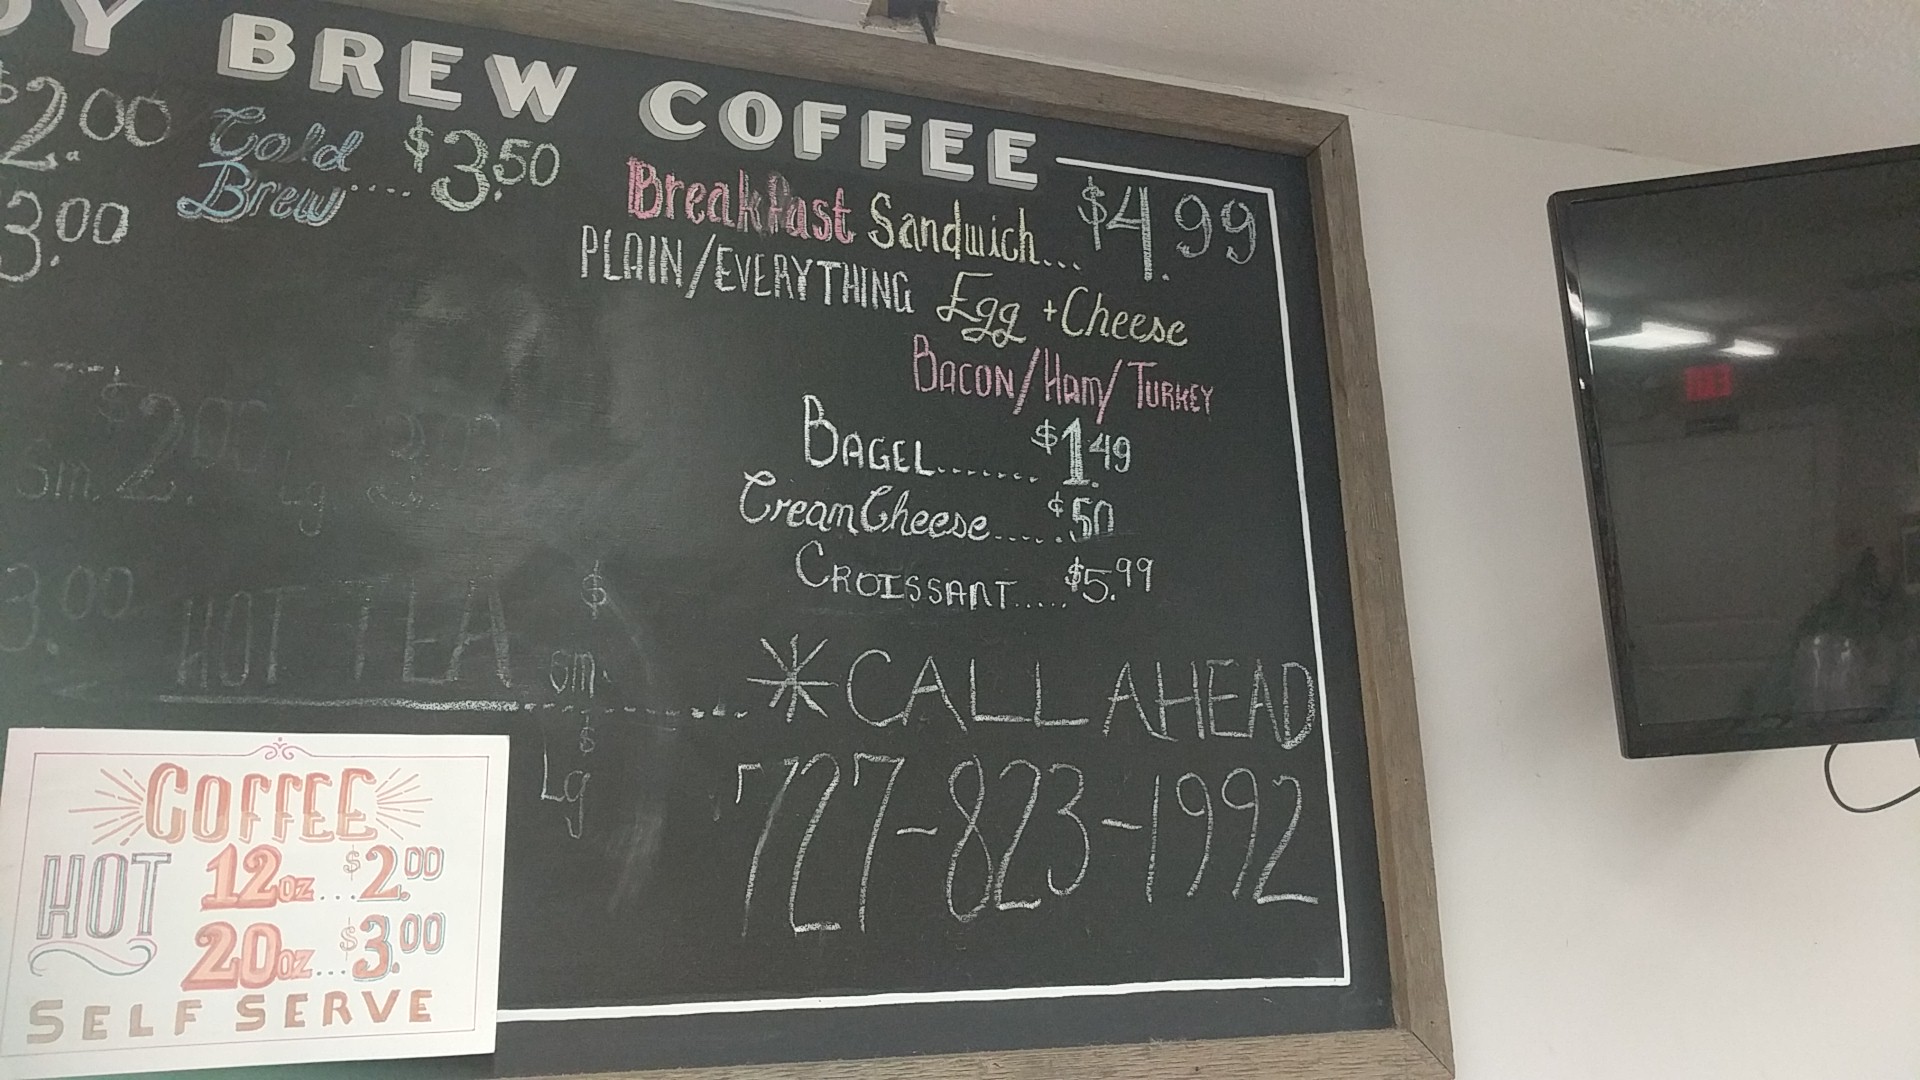 BREW COFFEE
$2.00 Cold Brew.... $3.50
3.00
Breakfast Sandwich... $4.99
PLAIN/EVERYTHING Egg + Cheese
BACON/HAM/TURKEY
BAGEL....... $1.49
Cream Cheese..... $.50
CROISSANT..... $5.99
$2.00
sm. Lg
3.00 HOT TEA $
sm.
$
Lg
*CALL AHEAD
727-823-1992
COFFEE
HOT 12oz...$2.00
20oz...$3.00
SELF SERVE